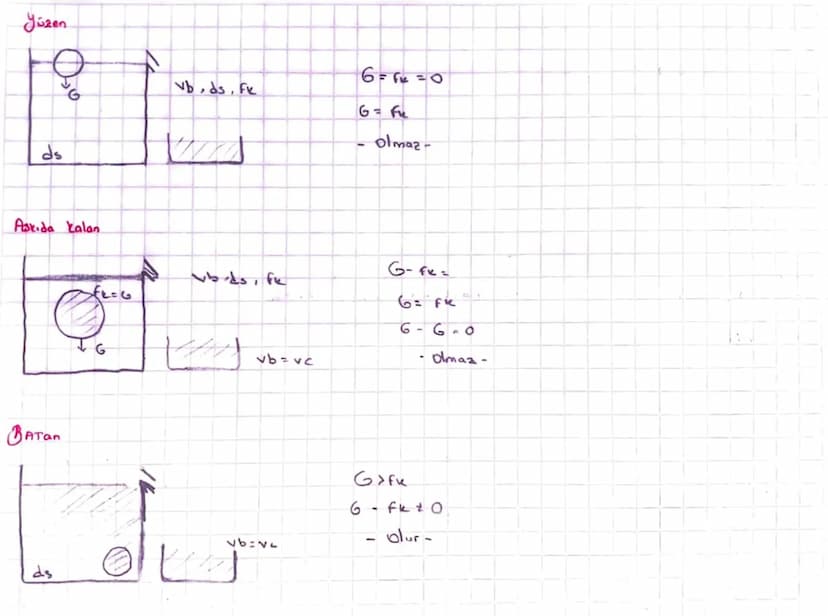 Yüzen
G
ds
Vb . ds . fk
G = fk = 0
G = fk
- Olmaz -
Askıda kalan
fk = G
G
Vb . ds . fk
Vb = Vc
G - fk =
G = fk
G - G = 0
- Olmaz -
Batan
ds
Vb = Vc
G > fk
G - fk ≠ 0
- Olur -